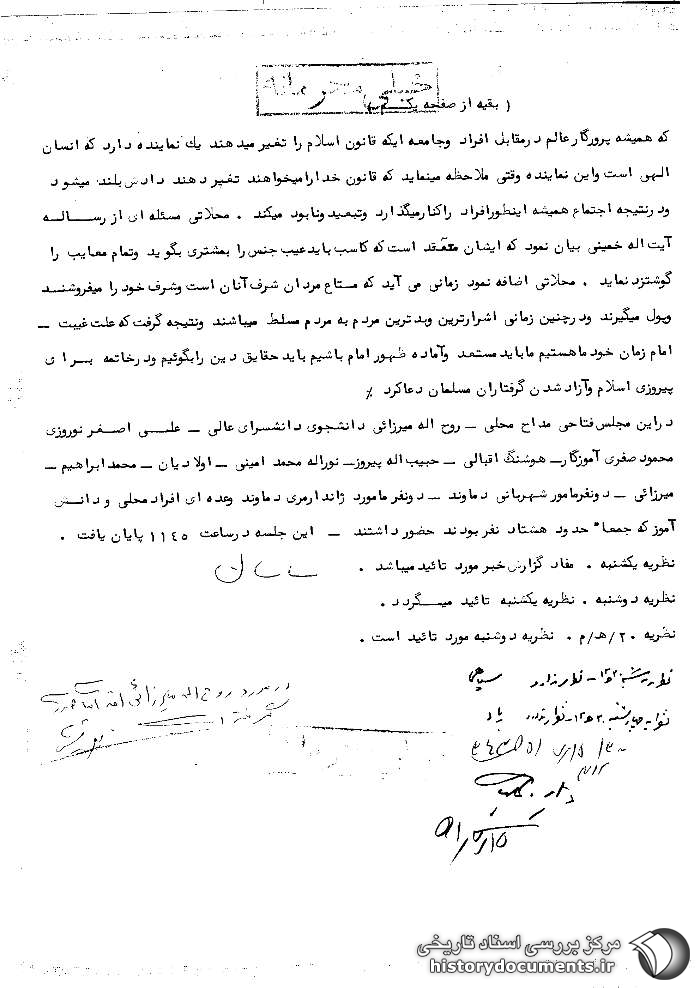 خیلی محرمانه
( بقیه از صفحه یک )
که همیشه پرورگار عالم درمقابل افراد وجامعه ایکه قانون اسلام را تغیر میدهند یك نماینده دارد که انسان
الهی است واین نماینده وقتی ملاحظه مینماید که قانون خدارامیخواهند تغیر دهند دادش بلند میشود
ودرنتیجه اجتماع همیشه اینطورافراد راکنارمیگذارد وتبعیدونابود میکند . محلاتی مسئله ای از رساله
آیت اله خمینی بیان نمود که ایشان معتقد است که کاسب بایدعیب جنس را بمشتری بگوید وتمام معایب را
گوشتزد نماید . محلاتی اضافه نمود زمانی می آید که متاع مردان شرف آنان است وشرف خود را میفروشند
وپول میگیرند ودرچنین زمانی اشرارترین وبدترین مردم به مردم مسلط میباشند ونتیجه گرفت که علت غیبت –
امام زمان خود ماهستیم مابایدمستعد وآماده ظهور امام باشیم باید حقایق دین رابگوئیم ودرخاتمه برای
پیروزی اسلام وآزاد شدن گرفتاران مسلمان دعاکرد ٪
دراین مجلس فتاحی مداح محلی – روح اله میرزائی دانشجوی دانشسرای عالی – علی اصغر نوروزی
محمود صفری آموزگار – هوشنگ اقبالی – حبیب اله پیروز – نوراله محمد امینی – اولادیان – محمدابراهیم –
میرزائی – دونفرمامور شهربانی دماوند – دونفر مامورد ژاندارمری دماوند وعده ای افراد محلی و دانش
آموز که جمعا" حدود هشتاد نفر بودند حضور داشتند – این جلسه درساعت ۱۱۴۵ پایان یافت .
نظریه یکشنبه . مفاد گزارش خبر مورد تائید میباشد .
نظریه دوشنبه . نظریه یکشنبه تائید میگردد .
نظریه ۲۰/ه/م . نظریه دوشنبه مورد تائید است .
در مورد روح اله میرزائی
مرکز بررسی اسناد تاریخی
historydocuments.ir